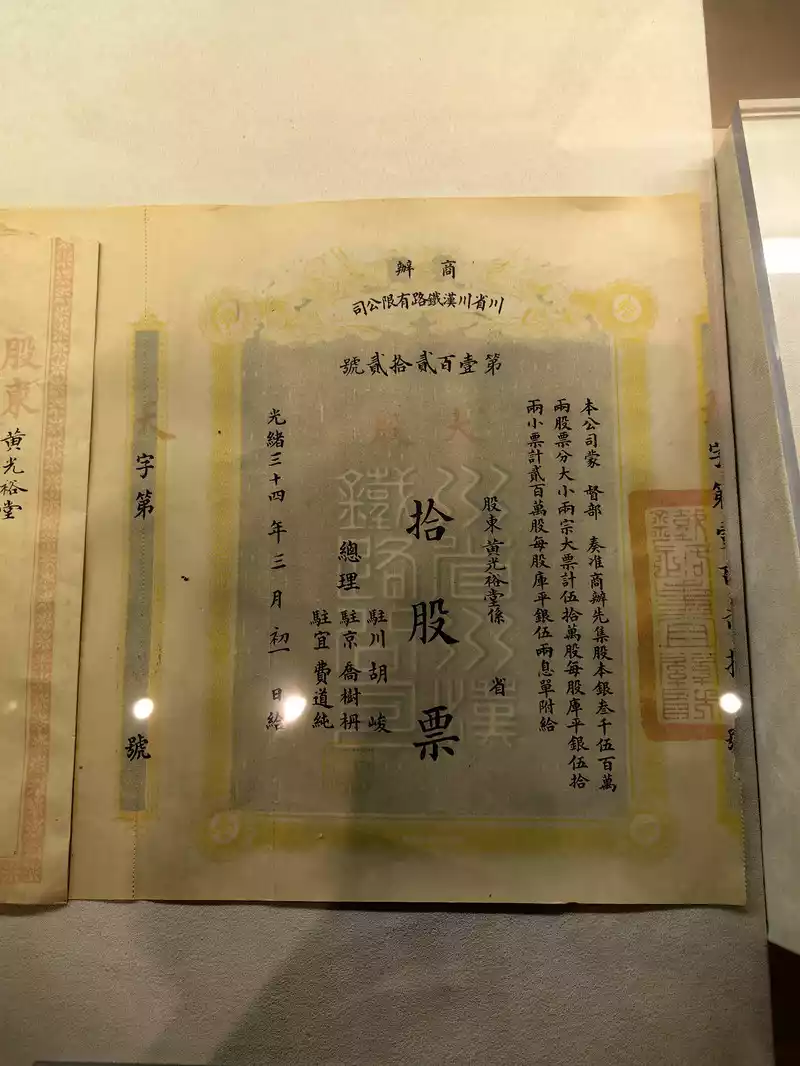 商辦
川省川漢鐵路有限公司
第壹百貳拾貳號
本公司蒙 督部 奏准商辦先集股本銀叁千伍百萬
兩股票分大小兩宗大票計伍拾萬股每股庫平銀伍拾
兩小票計貳百萬股每股庫平銀伍兩息單附給
股東黃光裕堂係 省
拾股票
總理
駐川胡峻
駐京喬樹枬
駐宜費道純
光緒三十四年三月初一日給
川省川漢
鐵路公司
大
字第
號
股東
黃光裕堂